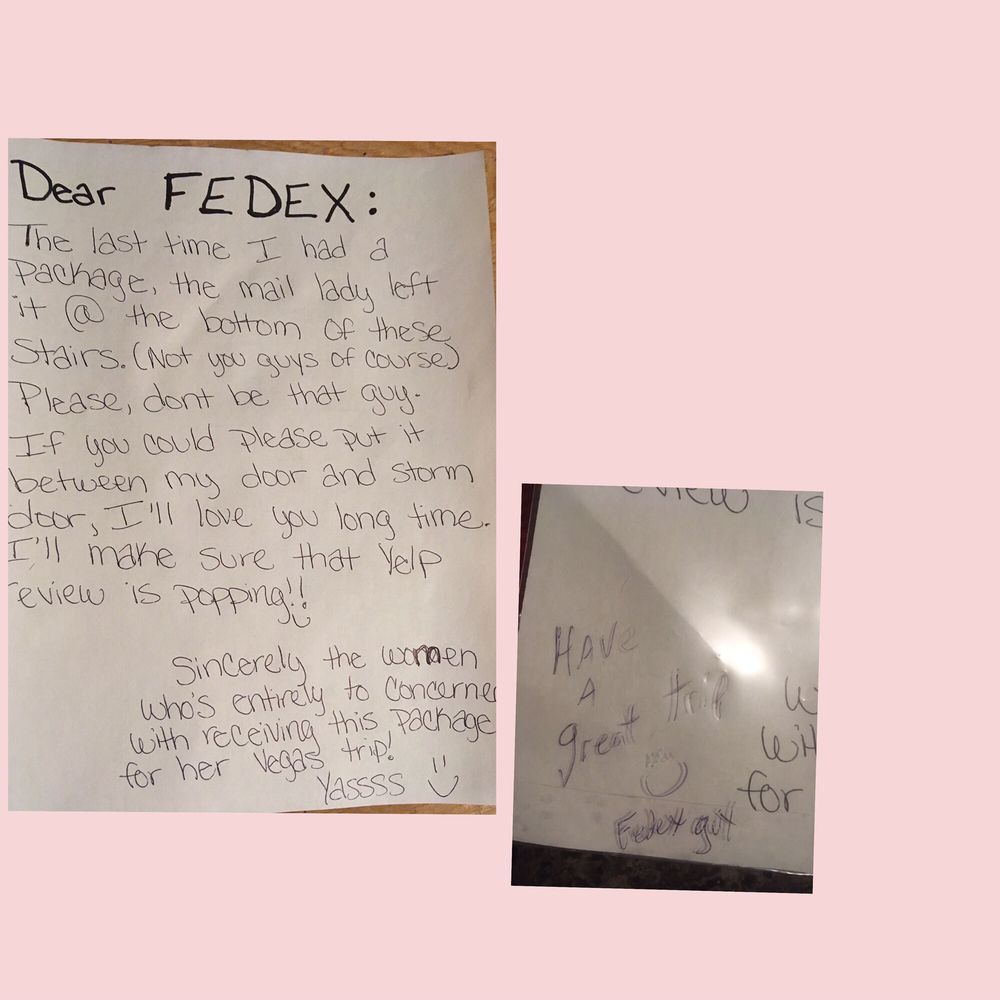 Dear FEDEX:
The last time I had a
package, the mail lady left
it @ the bottom of these
Stairs. (Not you guys of course)
Please, dont be that guy.
If you could please put it
between my door and storm
door, I'll love you long time.
I'll make sure that Yelp
review is popping!!
Sincerely the women
who's entirely to concerned
with receiving this package
for her Vegas trip!
Yassss
eview is
HAVE
A trip
great
with
for
Fedex guy